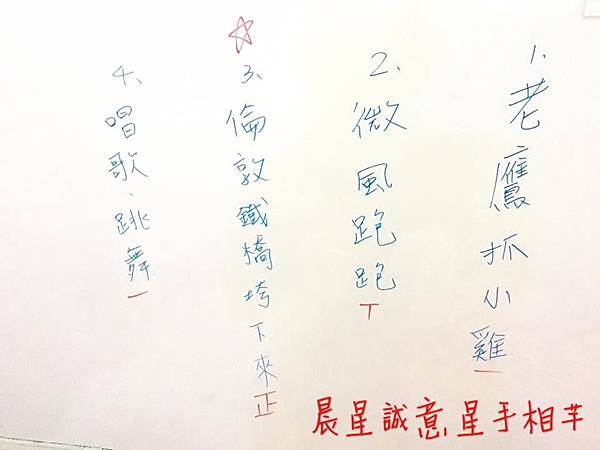 1、老鷹抓小雞一
2、微風跑跑丅
3、倫敦鐵橋垮下來正
4、唱歌、跳舞一
晨星誠意,星手相芊